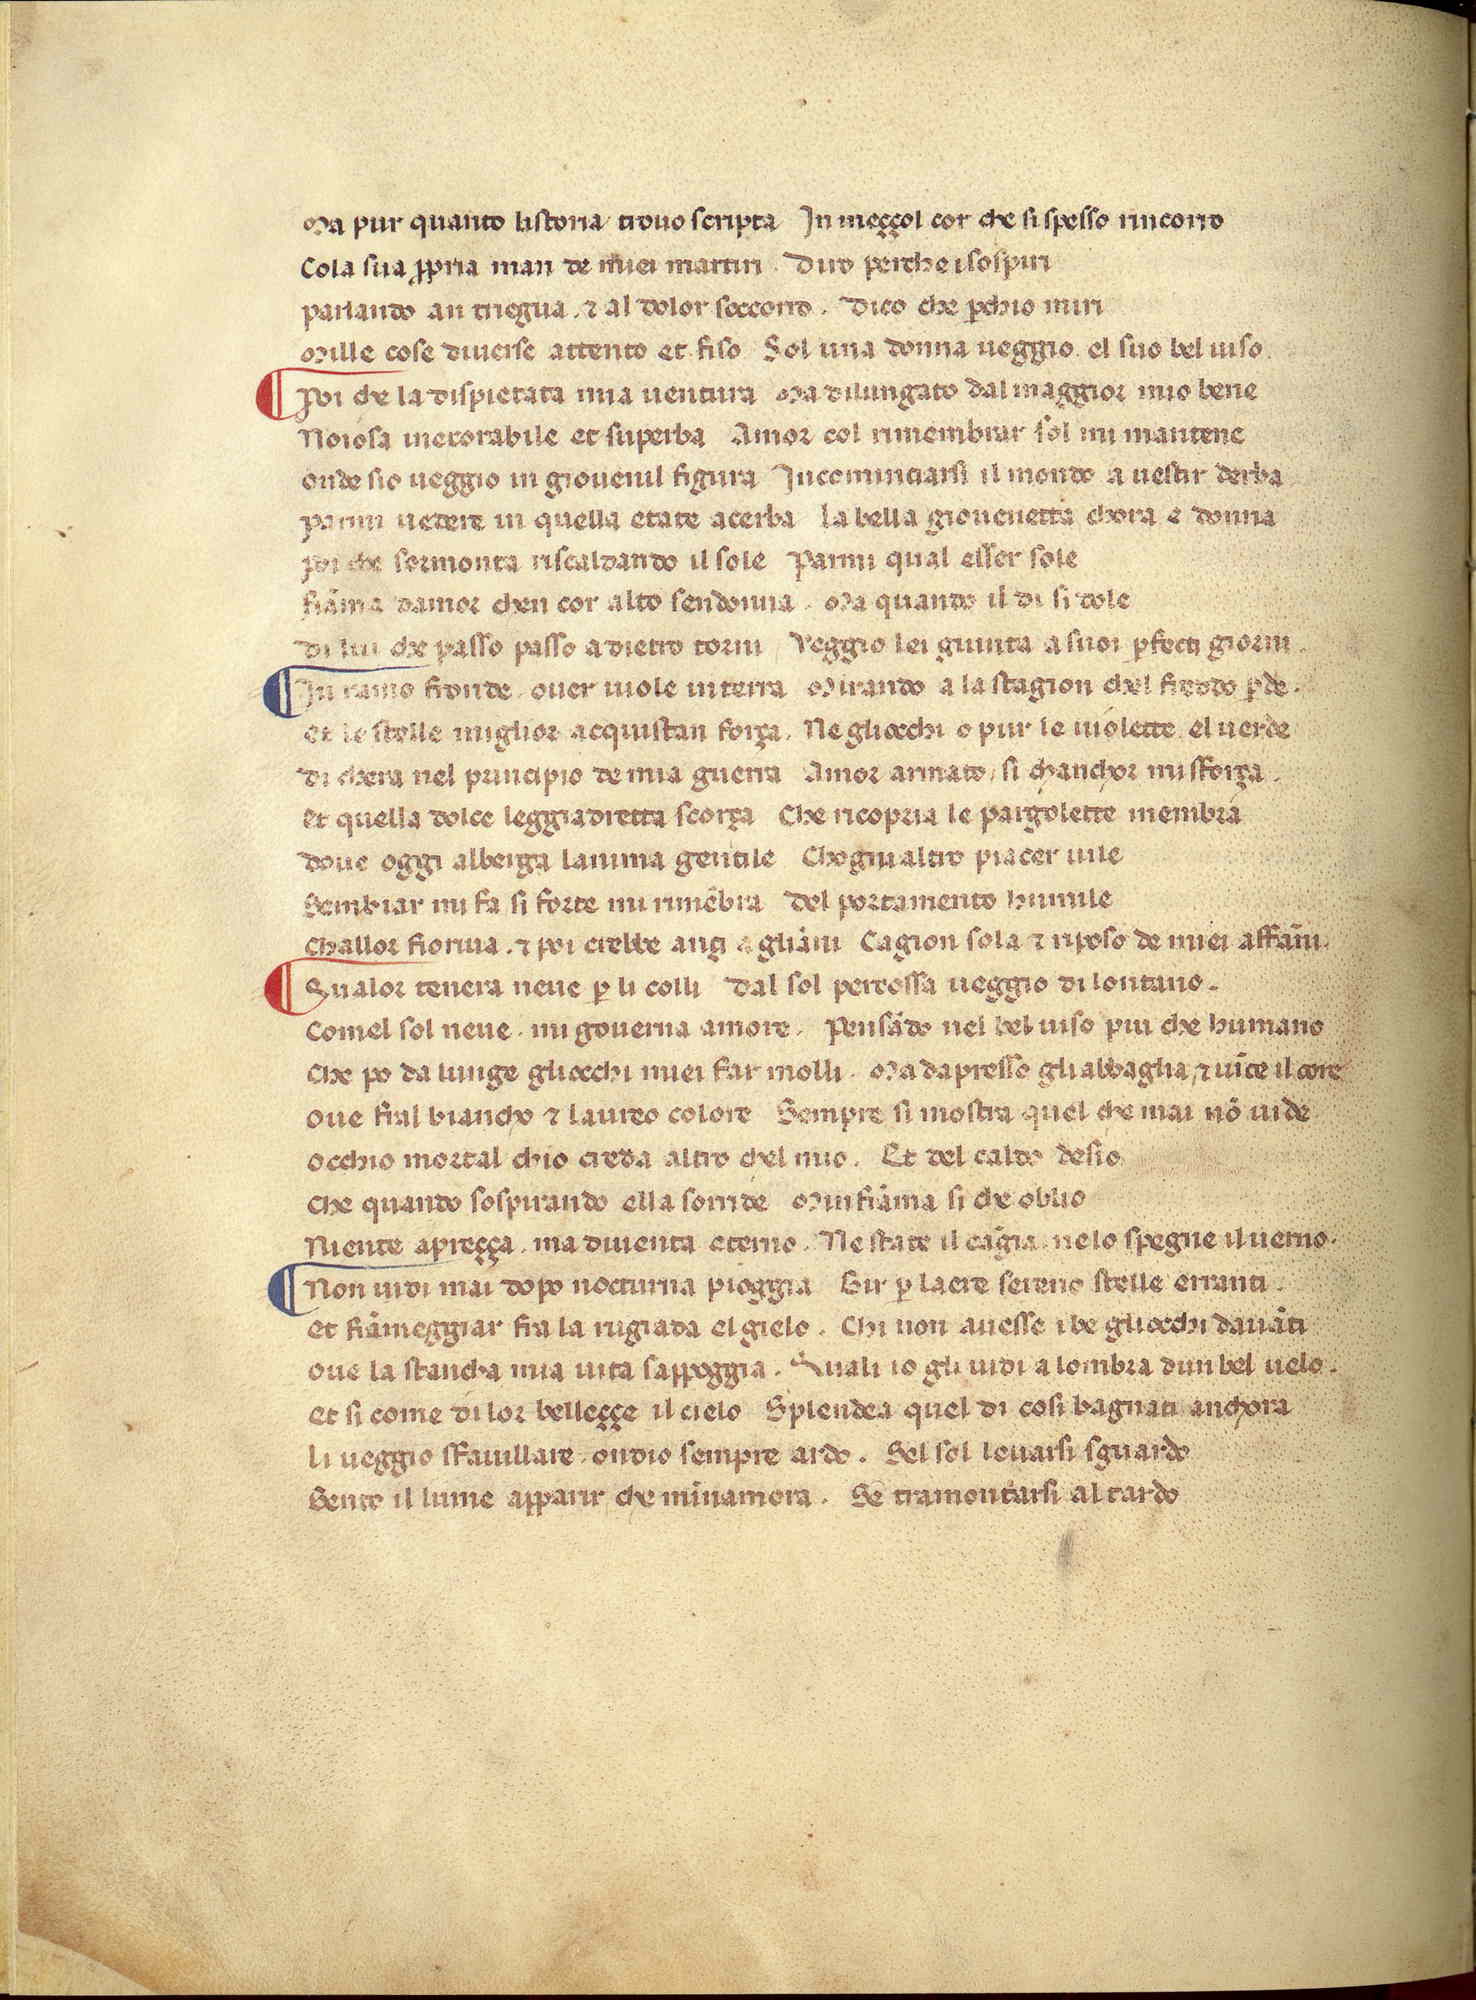 Ma pur quanto listoria trouo scripta In meççol cor che si spesso rincorro
Cola sua ꝓpria man de miei martiri . Diro perche isospiri
parlando an triegua . ⁊ al dolor soccorro . Dico che ꝑchio miri
Mille cose diuerse attento et fiso Sol una donna ueggio el suo bel uiso .
Poi che la dispietata mia uentura Ma dilungato dal maggior mio bene
Noiosa inexorabile et superba Amor col rimembrar sol mi mantene
onde sio ueggio in giouenil figura Incominciarsi il mondo a uestir derba
parmi uedere in quella etate acerba la bella giouenetta chora e donna
poi che sormonta riscaldando il sole Parmi qual esser sole
fiam̄a damor chen cor alto sendonna . Ma quando il di si dole
di lui che passo passo a dietro torni Veggio lei giunta a suoi ꝑfecti giorni .
In ramo fronde . ouer uiole in terra Mirando a la stagion chel freddo ꝑde .
et le stelle miglior acquistan força . Ne gliocchi o pur le uiolette el uerde
di chera nel principio de mia guerra Amor armato si chanchor mi sforça .
et quella dolce leggiadretta scorça Che ricopria le pargolette membra
doue oggi alberga lanima gentile Chogni altro piacer uile
Sembiar mi fa si forte mi rimēbra del portamento humile
challor fioriua . ⁊ poi crebbe ançi agliāni Cagion sola ⁊ riposo de miei affāni .
Qualor tenera neue ꝑ li colli Dal sol percossa ueggio di lontano .
Comel sol neue . mi gouerna amore . Pensādo nel bel uiso piu che humano
che po da lunge gliocchi miei far molli . Ma dapresso gli abbaglia , ⁊ uīce il core
oue fral biancho ⁊ laureo colore Sempre si mostra quel che mai nō uide
occhio mortal chio creda altro chel mio . Et del caldo desio
che quando sospirando ella sorride Minfiāma si che oblio
Niente apreçça . ma diuenta eterno . Ne state il cāgia . ne lo spegne il uerno .
Non uidi mai dopo nocturna pioggia Gir ꝑ laere sereno stelle erranti .
et fiāmeggiar fra la rugiada el gielo . Chi non auesse i be gliocchi dauāti
oue la stancha mia uita sappoggia . Quali io gli uidi a lombra dun bel uelo .
et si come di lor belleççe il cielo Splendea quel di cosi bagnati anchora
li ueggio sfauillare . ondio sempre ardo . Sel sol leuarsi sguardo
Sento il lume apparir che mīnamora . Se tramontarsi al tardo